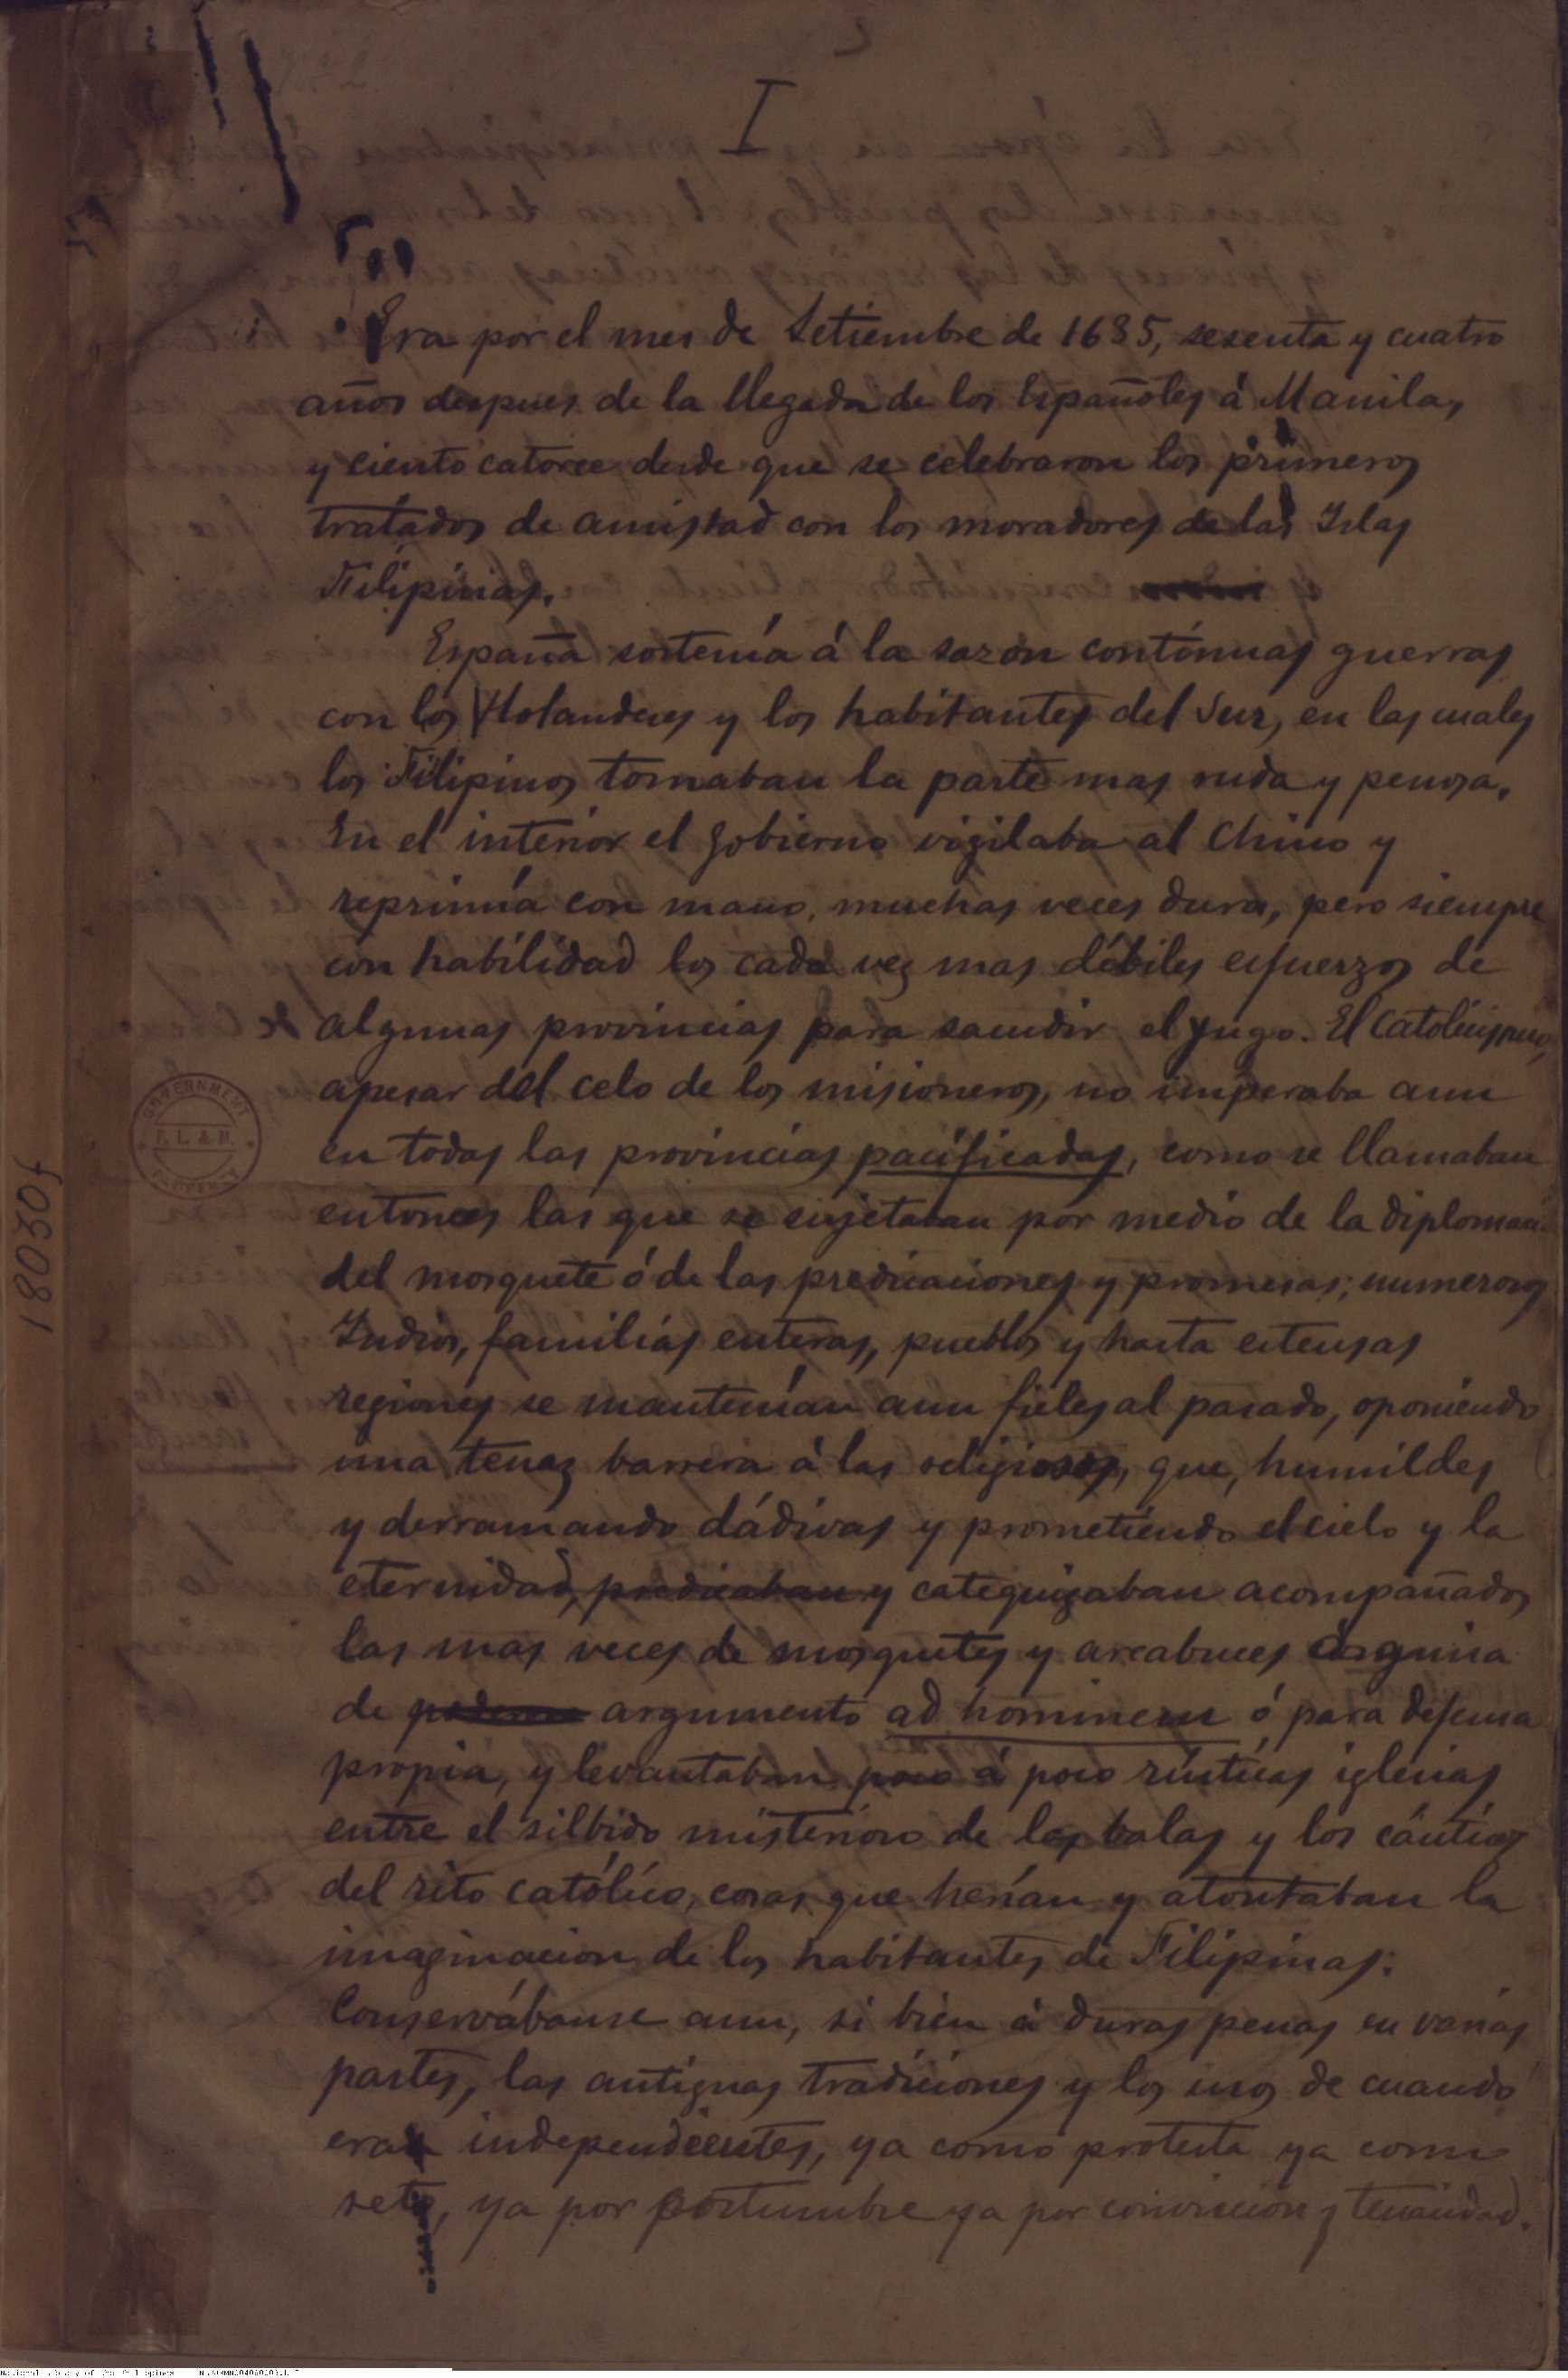 I
Era por el mes de Setiembre de 1685, sesenta y cuatro
años despues de la llegada de los Españoles á Manila,
y ciento catorce desde que se celebraron los primeros
tratados de amistad con los moradores de las Islas
Filipinas.
España sostenía á la sazon contínuas guerras
con los Holandeses y los habitantes del Sur, en las cuales
los Filipinos tomaban la parte mas ruda y penosa.
En el interior el gobierno vigilaba al Chino y
reprimía con mano, muchas veces dura, pero siempre
con habilidad los cada vez mas débiles esfuerzos de
algunas provincias para sacudir el yugo. El Catolicismo,
apesar del celo de los misioneros, no imperaba aun
en todas las provincias pacificadas, como se llamaban
entonces las que se sujetaban por medio de la diplomacia
del mosquete ó de las predicaciones y promesas; numerosos
Indios, familias enteras, pueblos y hasta estensas
regiones se mantenían aun fieles al pasado, oponiendo
una tenaz barrera á los religiosos, que, humildes
y derramando dádivas y prometiendo el cielo y la
eternidad, predicaban y catequizaban acompañados
las mas veces de mosquetes y arcabuces á guisa
de argumento ad hominem ó para defensa
propia, y levantaban poco á poco rústicas iglesias
entre el silbido misterioso de las balas y los cánticos
del rito católico, cosas que herían y atontaban la
imaginacion de los habitantes de Filipinas.
Conservábanse aun, si bien á duras penas en varias
partes, las antiguas tradiciones y los usos de cuando
eran independientes, ya como protesta ya como
reto, ya por costumbre ya por conviccion y tenacidad.
18030f
GOVERNMENT
P. L. & M.
PROPERTY
National Library of the Philippines